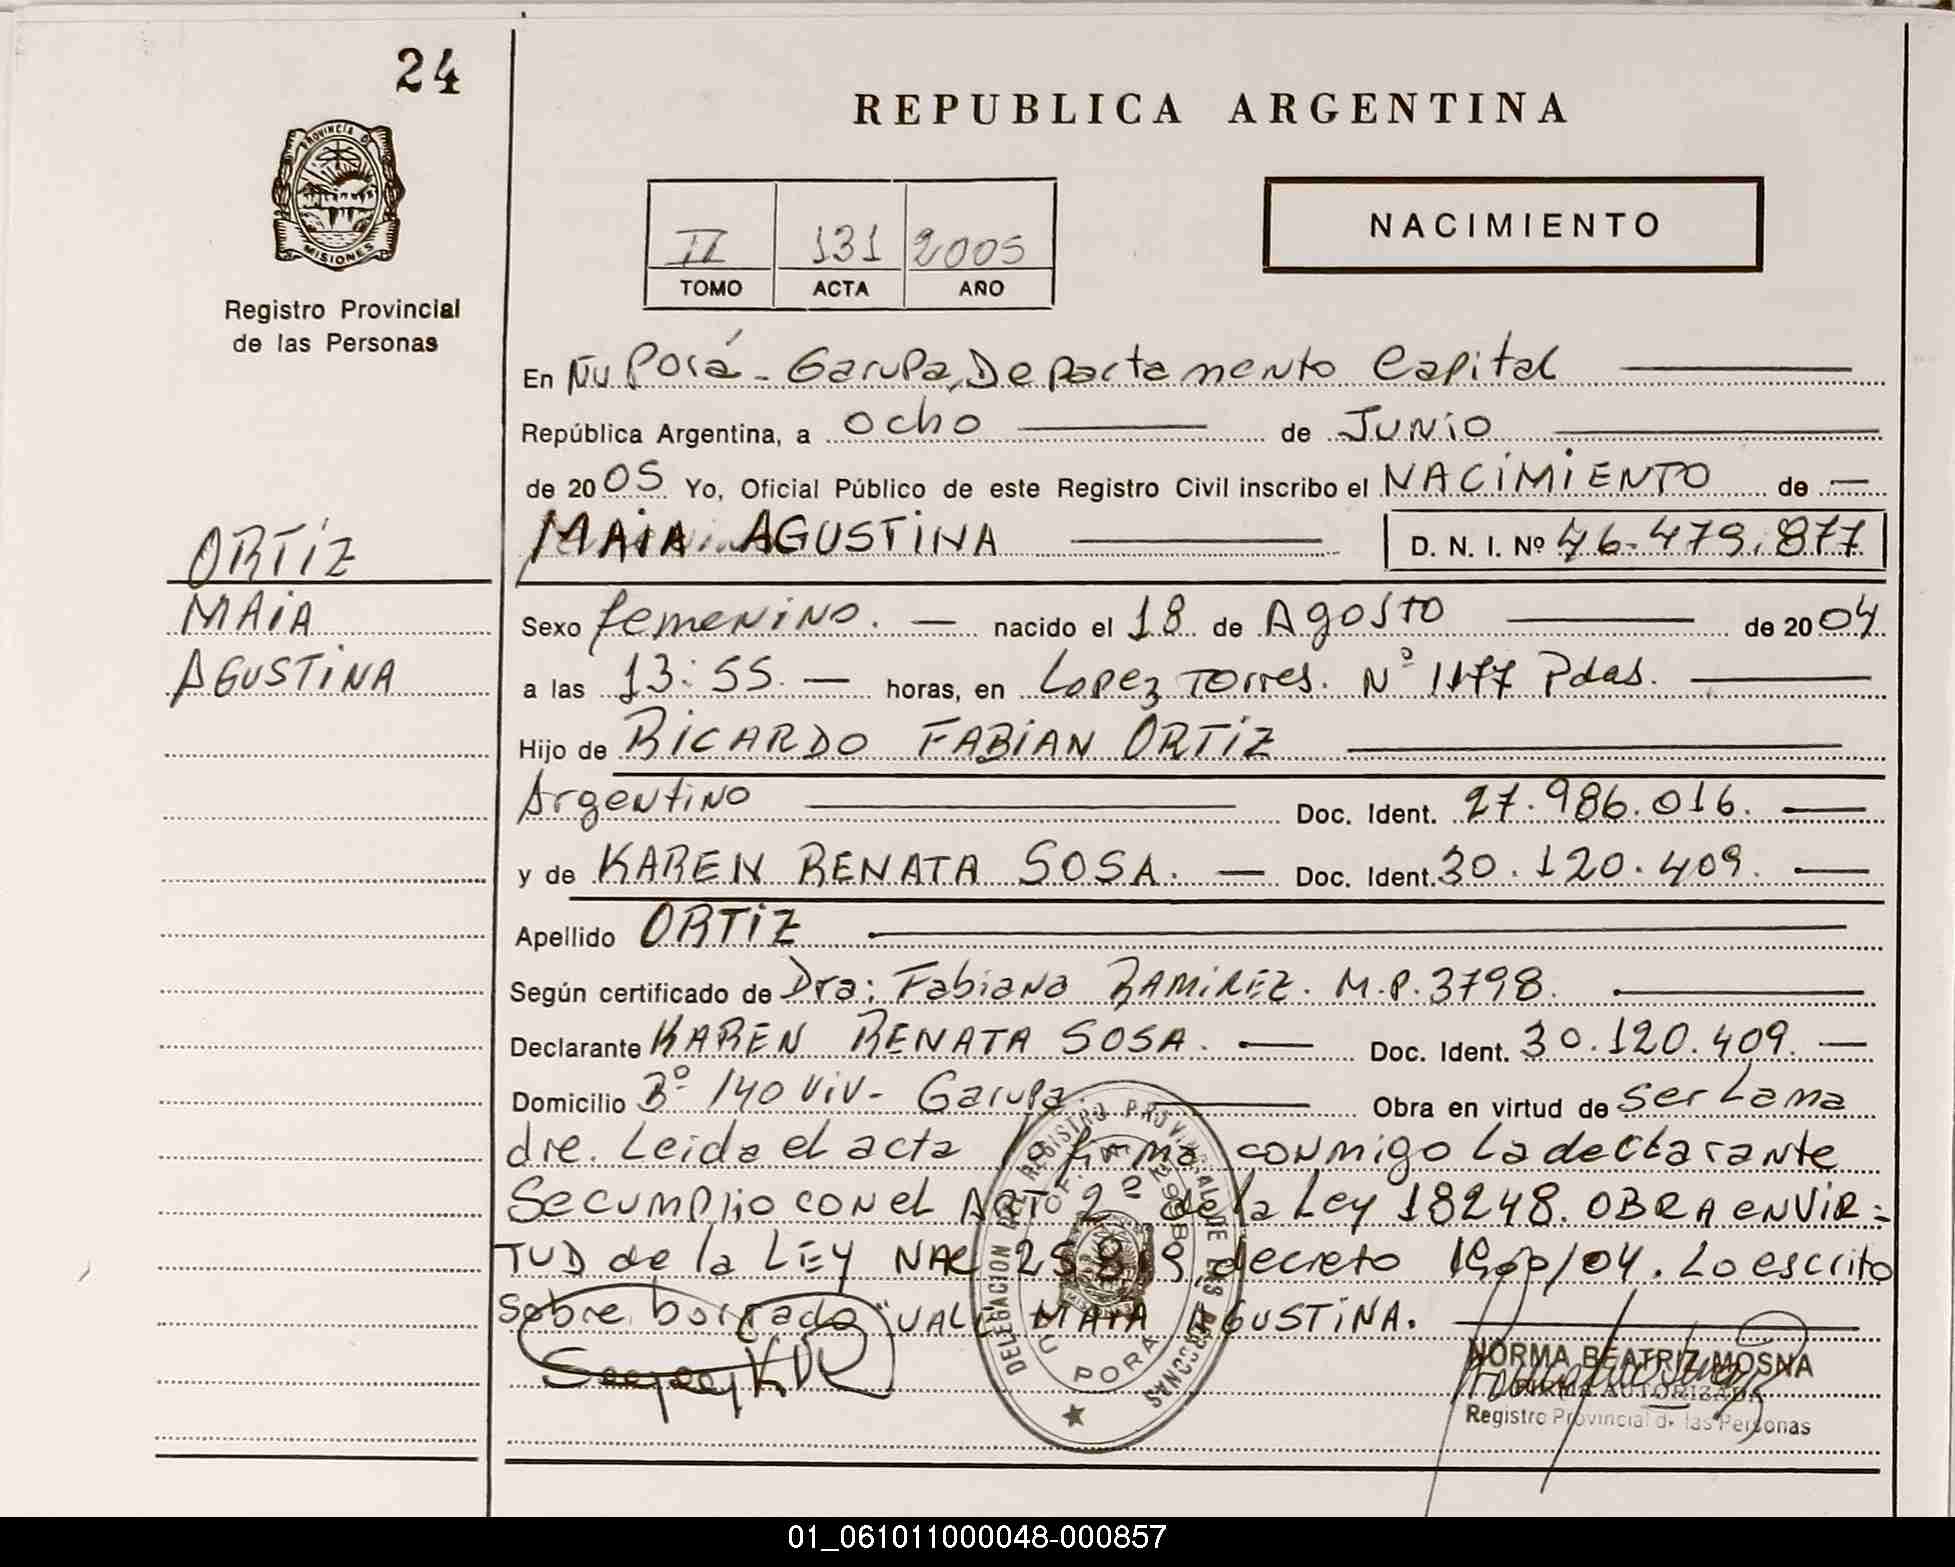 24
PROVINCIA D
MISIONES
Registro Provincial
de las Personas
REPUBLICA ARGENTINA
NACIMIENTO
II 131 2005
TOMO ACTA AÑO
En Ñu Porá - Garupa, Departamento Capital
República Argentina, a ocho de Junio
de 2005 Yo, Oficial Público de este Registro Civil inscribo el NACIMIENTO de
MAIA AGUSTINA D. N. I. Nº 46.479.877
ORTIZ
MAIA
AGUSTINA
Sexo femenino. nacido el 18 de Agosto de 2004
a las 13:55. horas, en Lopez Torres. Nº 1177 Pdas.
Hijo de RICARDO FABIAN ORTIZ
Argentino Doc. Ident. 27.986.016.
y de KAREN RENATA SOSA. Doc. Ident. 30.120.409.
Apellido ORTIZ
Según certificado de Dra: Fabiana RAMIREZ. M.P. 3798.
Declarante KAREN RENATA SOSA. Doc. Ident. 30.120.409.
Domicilio Bº 140 Viv- Garupa. Obra en virtud de ser La ma
dre. Leida el acta la firma conmigo La declarante
Se cumplio con el ART 2º de la Ley 18248. OBRA en VIR-
TUD de la LEY NAC 25819, decreto /04. Lo escrito
sobre borrado "VALE" MAIA AGUSTINA.
DELEGACION DEL REGISTRO PROVINCIAL DE LAS PERSONAS
ÑU PORA
NORMA BEATRIZ MOSNA
FIRMA AUTORIZADA
Registro Provincial de las Personas
01_061011000048-000857